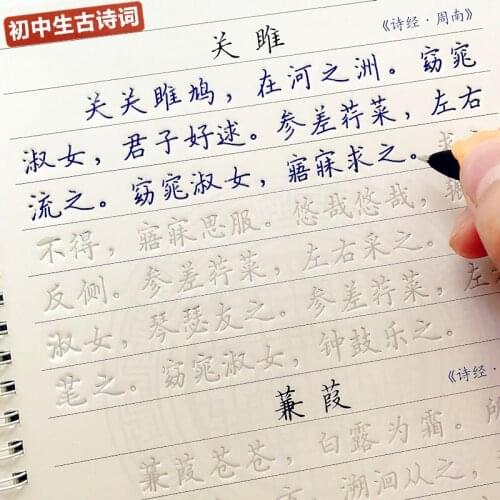 初中生古诗词
关雎
《诗经·周南》
关关雎鸠,在河之洲。窈窕
淑女,君子好逑。参差荇菜,左右
流之。窈窕淑女,寤寐求之。求之
不得,寤寐思服。悠哉悠哉,辗
反侧。参差荇菜,左右采之。
淑女,琴瑟友之。参差荇菜,左
芼之。窈窕淑女,钟鼓乐之。
蒹葭
《诗经
蒹葭苍苍,白露为霜。所
溯洄从之,